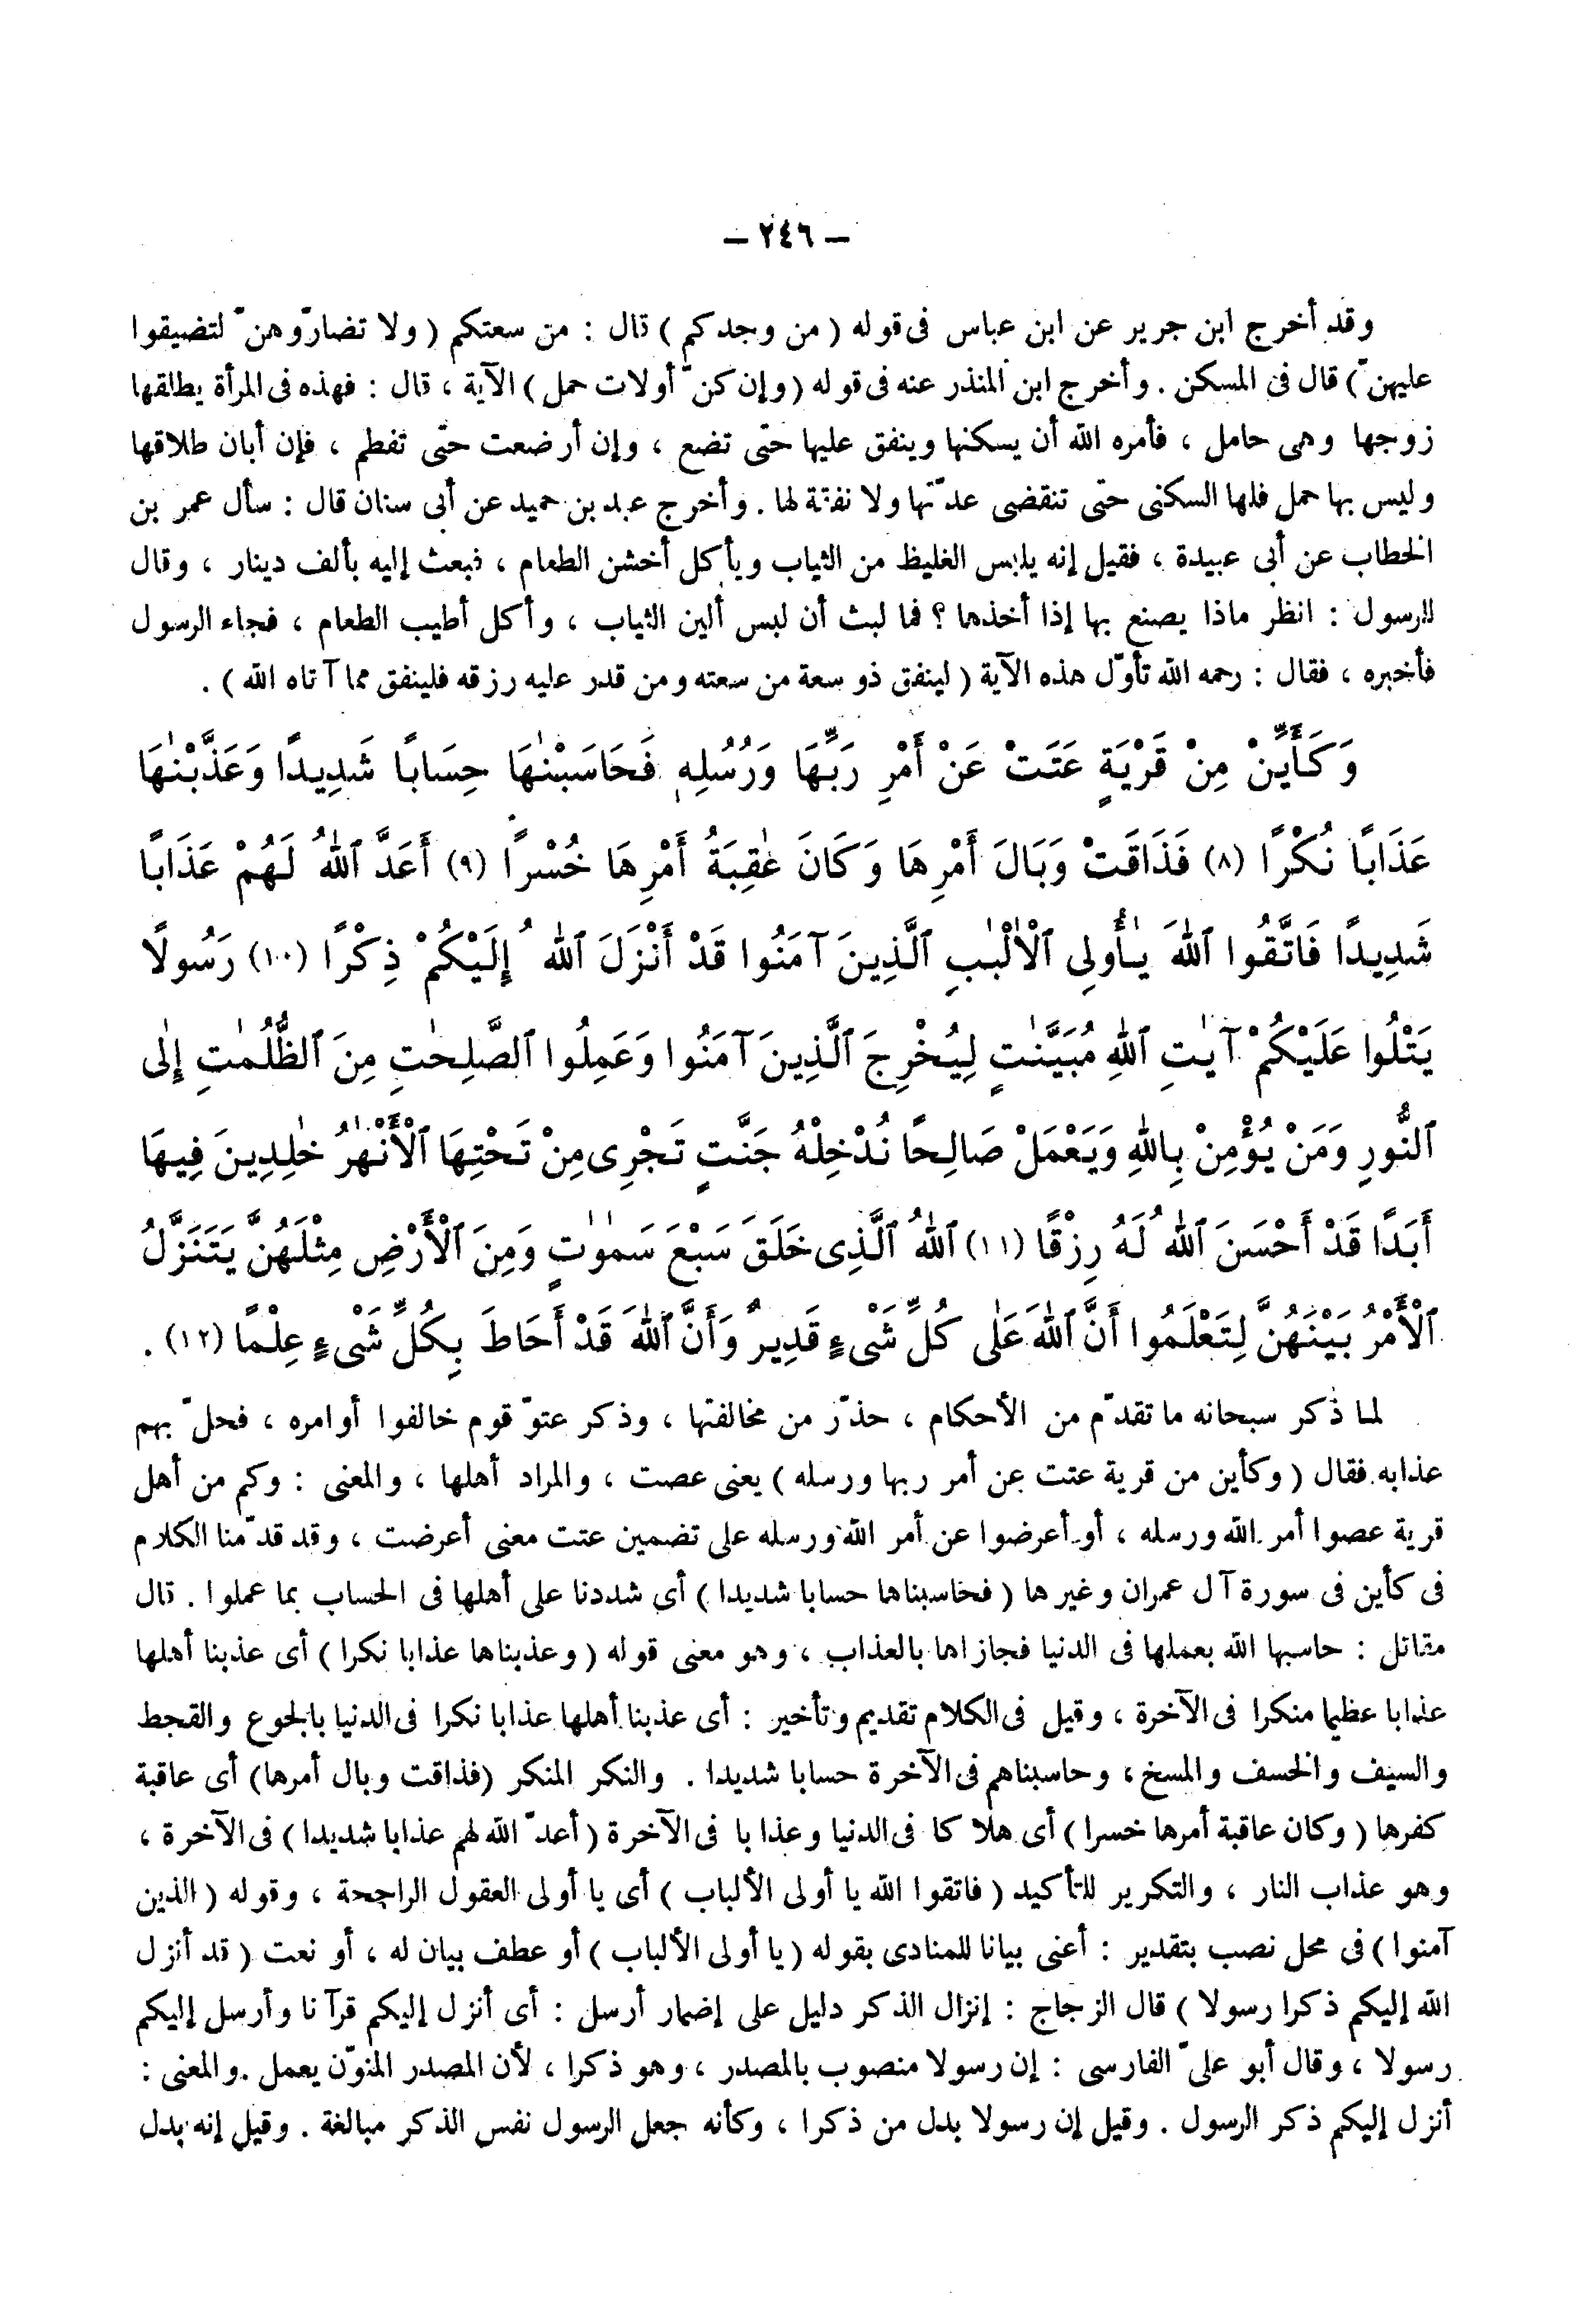 — ٢٤٦ —
وقد أخرج ابن جرير عن ابن عباس فى قوله ( من وجدكم ) قال : من سعتكم ( ولا تضارّوهنّ لتضيقوا
عليهنّ ) قال فى المسكن . وأخرج ابن المنذر عنه فى قوله ( وإن كنّ أولات حمل ) الآية ، قال : فهذه فى المرأة يطلقها
زوجها وهى حامل ، فأمره الله أن يسكنها وينفق عليها حتّى تضع ، وإن أرضعت حتّى تفطم ، فإن أبان طلاقها
وليس بها حمل فلها السكنى حتّى تنقضى عدّتها ولا نفقة لها . وأخرج عبد بن حميد عن أبى سنان قال : سأل عمر بن
الخطاب عن أبى عبيدة ، فقيل إنه يلبس الغليظ من الثياب ويأكل أخشن الطعام ، فبعث إليه بألف دينار ، وقال
للرسول : انظر ماذا يصنع بها إذا أخذها ؟ فما لبث أن لبس ألين الثياب ، وأكل أطيب الطعام ، فجاء الرسول
فأخبره ، فقال : رحمه الله تأوّل هذه الآية ( لينفق ذو سعة من سعته ومن قدر عليه رزقه فلينفق مما آتاه الله ) .
وَكَأَيِّنْ مِنْ قَرْيَةٍ عَتَتْ عَنْ أَمْرِ رَبِّهَا وَرُسُلِهِ فَحَاسَبْنٰهَا حِسَابًا شَدِيدًا وَعَذَّبْنٰهَا
عَذَابًا نُكْرًا (٨) فَذَاقَتْ وَبَالَ أَمْرِهَا وَكَانَ عٰقِبَةُ أَمْرِهَا خُسْرًا (٩) أَعَدَّ ٱللهُ لَهُمْ عَذَابًا
شَدِيدًا فَاتَّقُوا ٱللهَ يٰأُولِى ٱلْأَلْبٰبِ ٱلَّذِينَ آمَنُوا قَدْ أَنْزَلَ ٱللهُ إِلَيْكُمْ ذِكْرًا (١٠) رَسُولًا
يَتْلُوا عَلَيْكُمْ آيٰتِ ٱللهِ مُبَيَّنٰتٍ لِيُخْرِجَ ٱلَّذِينَ آمَنُوا وَعَمِلُوا ٱلصَّلِحٰتِ مِنَ ٱلظُّلُمٰتِ إِلٰى
ٱلنُّورِ وَمَنْ يُؤْمِنْ بِاللهِ وَيَعْمَلْ صَالِحًا نُدْخِلْهُ جَنّٰتٍ تَجْرِى مِنْ تَحْتِهَا ٱلْأَنْهٰرُ خٰلِدِينَ فِيهَا
أَبَدًا قَدْ أَحْسَنَ ٱللهُ لَهُ رِزْقًا (١١) ٱللهُ ٱلَّذِى خَلَقَ سَبْعَ سَمٰوٰتٍ وَمِنَ ٱلْأَرْضِ مِثْلَهُنَّ يَتَنَزَّلُ
ٱلْأَمْرُ بَيْنَهُنَّ لِتَعْلَمُوا أَنَّ ٱللهَ عَلٰى كُلِّ شَىْءٍ قَدِيرٌ وَأَنَّ ٱللهَ قَدْ أَحَاطَ بِكُلِّ شَىْءٍ عِلْمًا (١٢) .
لما ذكر سبحانه ما تقدّم من الأحكام ، حذّر من مخالفتها ، وذكر عتوّ قوم خالفوا أوامره ، فحلّ بهم
عذابه فقال ( وكأين من قرية عتت عن أمر ربها ورسله ) يعنى عصت ، والمراد أهلها ، والمعنى : وكم من أهل
قرية عصوا أمر الله ورسله ، أو أعرضوا عن أمر الله ورسله على تضمين عتت معنى أعرضت ، وقد قدّمنا الكلام
فى كأين فى سورة آل عمران وغيرها ( فحاسبناها حسابا شديدا ) أى شددنا على أهلها فى الحساب بما عملوا . قال
مقاتل : حاسبها الله بعملها فى الدنيا فجازاها بالعذاب ، وهو معنى قوله ( وعذبناها عذابا نكرا ) أى عذبنا أهلها
عذابا عظيما منكرا فى الآخرة ، وقيل فى الكلام تقديم وتأخير : أى عذبنا أهلها عذابا نكرا فى الدنيا بالجوع والقحط
والسيف والخسف والمسخ ، وحاسبناهم فى الآخرة حسابا شديدا . والنكر المنكر (فذاقت وبال أمرها) أى عاقبة
كفرها ( وكان عاقبة أمرها خسرا ) أى هلاكا فى الدنيا وعذابا فى الآخرة ( أعدّ الله لهم عذابا شديدا ) فى الآخرة ،
وهو عذاب النار ، والتكرير للتأكيد ( فاتقوا الله يا أولى الألباب ) أى يا أولى العقول الراجحة ، وقوله ( الذين
آمنوا ) فى محل نصب بتقدير : أعنى بيانا للمنادى بقوله ( يا أولى الألباب ) أو عطف بيان له ، أو نعت ( قد أنزل
الله إليكم ذكرا رسولا ) قال الزجاج : إنزال الذكر دليل على إضمار أرسل : أى أنزل إليكم قرآنا وأرسل إليكم
رسولا ، وقال أبو علىّ الفارسى : إن رسولا منصوب بالمصدر ، وهو ذكرا ، لأن المصدر المنوّن يعمل . والمعنى :
أنزل إليكم ذكر الرسول . وقيل إن رسولا بدل من ذكرا ، وكأنه جعل الرسول نفس الذكر مبالغة . وقيل إنه بدل